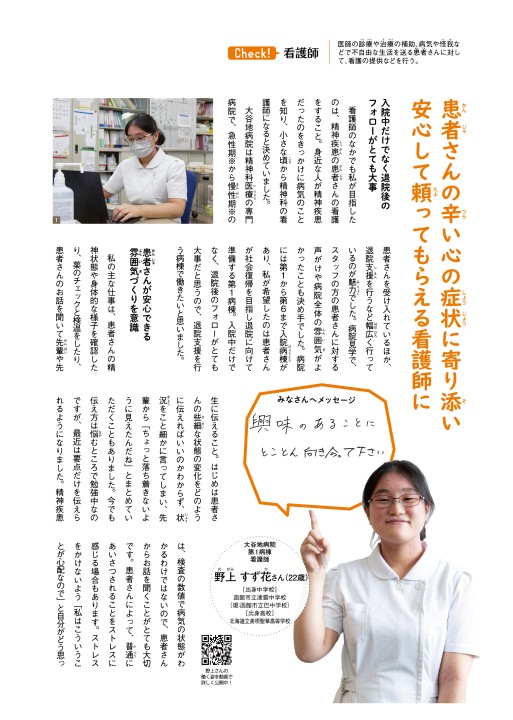 Check!
看護師
医師の診療や治療の補助、病気や怪我な
どで不自由な生活を送る患者さんに対し
て、看護の提供などを行う。
患者さんの辛い心の症状に寄り添い
安心して頼ってもらえる看護師に
入院中だけでなく退院後の
フォローがとても大事
看護師のなかでも私が目指した
のは、精神疾患の患者さんの看護
をすること。身近な人が精神疾患
だったのをきっかけに病気のこと
を知り、小さな頃から精神科の看
護師になると決めていました。
大谷地病院は精神科医療の専門
病院で、急性期※から慢性期※の
1
患者さんを受け入れているほか、
退院支援を行うなど幅広く行って
いるのが魅力でした。病院見学で、
スタッフの方の患者さんに対する
声がけや病院全体の雰囲気がよ
かったことも決め手でした。病院
には第1から第6まで入院病棟が
あり、私が希望したのは患者さん
が社会復帰を目指し退院に向けて
準備する第1病棟。入院中だけで
なく、退院後のフォローがとても
大事だと思うので、退院支援を行
う病棟で働きたいと思いました。
患者さんが安心できる
雰囲気づくりを意識
私の主な仕事は、患者さんの精
神状態や身体的な様子を確認した
り、薬のチェックと検温をしたり、
患者さんのお話を聞いて先輩や先
生に伝えること。はじめは患者さ
んの些細な状態の変化をどのよう
に伝えればいいのかわからず、状
況をこと細かに言ってしまい、先
輩から「ちょっと落ち着きないよ
うに見えたんだね」とまとめてい
ただくこともありました。今でも
伝え方は悩むところで勉強中なの
ですが、最近は要点だけを伝えら
れるようになりました。精神疾患
は、検査の数値で病気の状態がわ
かるわけではないので、患者さん
からお話を聞くことがとても大切
です。患者さんによって、普通に
あいさつされることをストレスに
感じる場合もあります。ストレス
をかけないよう「私はこういうこ
とが心配なので」と自分がどう思っ
みなさんへメッセージ
興味のあることに
とことん向き合って下さい
大谷地病院
第1病棟
看護師
野上 すず花さん(22歳)
[出身中学校]
函館市立凌雲中学校
(現:函館市立巴中学校)
[出身高校]
北海道立美唄聖華高等学校
野上さんの
働く姿を動画で
詳しく公開中!